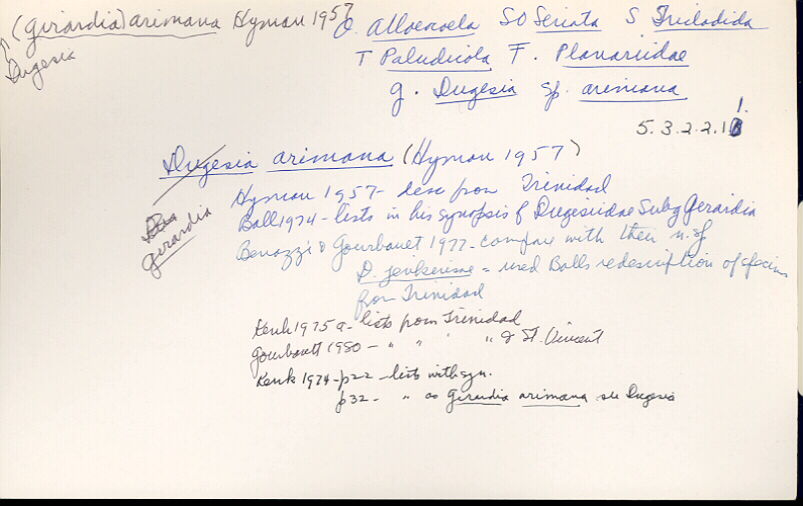 (Girardia) arimana Hyman 1957
Dugesia
O. Alloeocoela SO Seriata S Tricladida
T Paludicola F. Planariidae
g. Dugesia sp. arimana
1.
5.3.2.2.1
Dugesia arimana (Hyman 1957)
Girardia
Hyman 1957- desc from Trinidad
Ball 1974- lists in his synopsis of Dugesiidae Subg Girardia
Benazzi & Gourbault 1977- compare with their n. sp
D. jenkensae - used Balls redescription of specim
from Trinidad
Kenk 1975a- lists from Trinidad
Gourbault 1980- " " " " & St. Vincent
Kenk 1974- p22- lists with syn.
p32- " as Girardia arimana see Dugesia